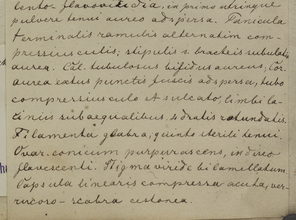 lento-flavovitidia, in primo utrinque
pulvere tenui aureo adspersa. Panicula
terminalis ramulis alternatim com-
pressiusculis; stipulis & bracteis subulatis
aurea. Cal. tubulosus bifidus aureus, Cor.
aurea extus punctis fuscis adspersa, tubo
compressiusculo 4 sulcato, limbi la-
ciniis subaequalibus 4 dratis rotundatis.
Filamenta glabra; quinto sterili tenui
Ovar. conicum purpurascens, in disco
flavescenti. Stigma viride bilamellatum.
Capsula linearis compressa acuta, ver-
rucoro-scabra cutonea.